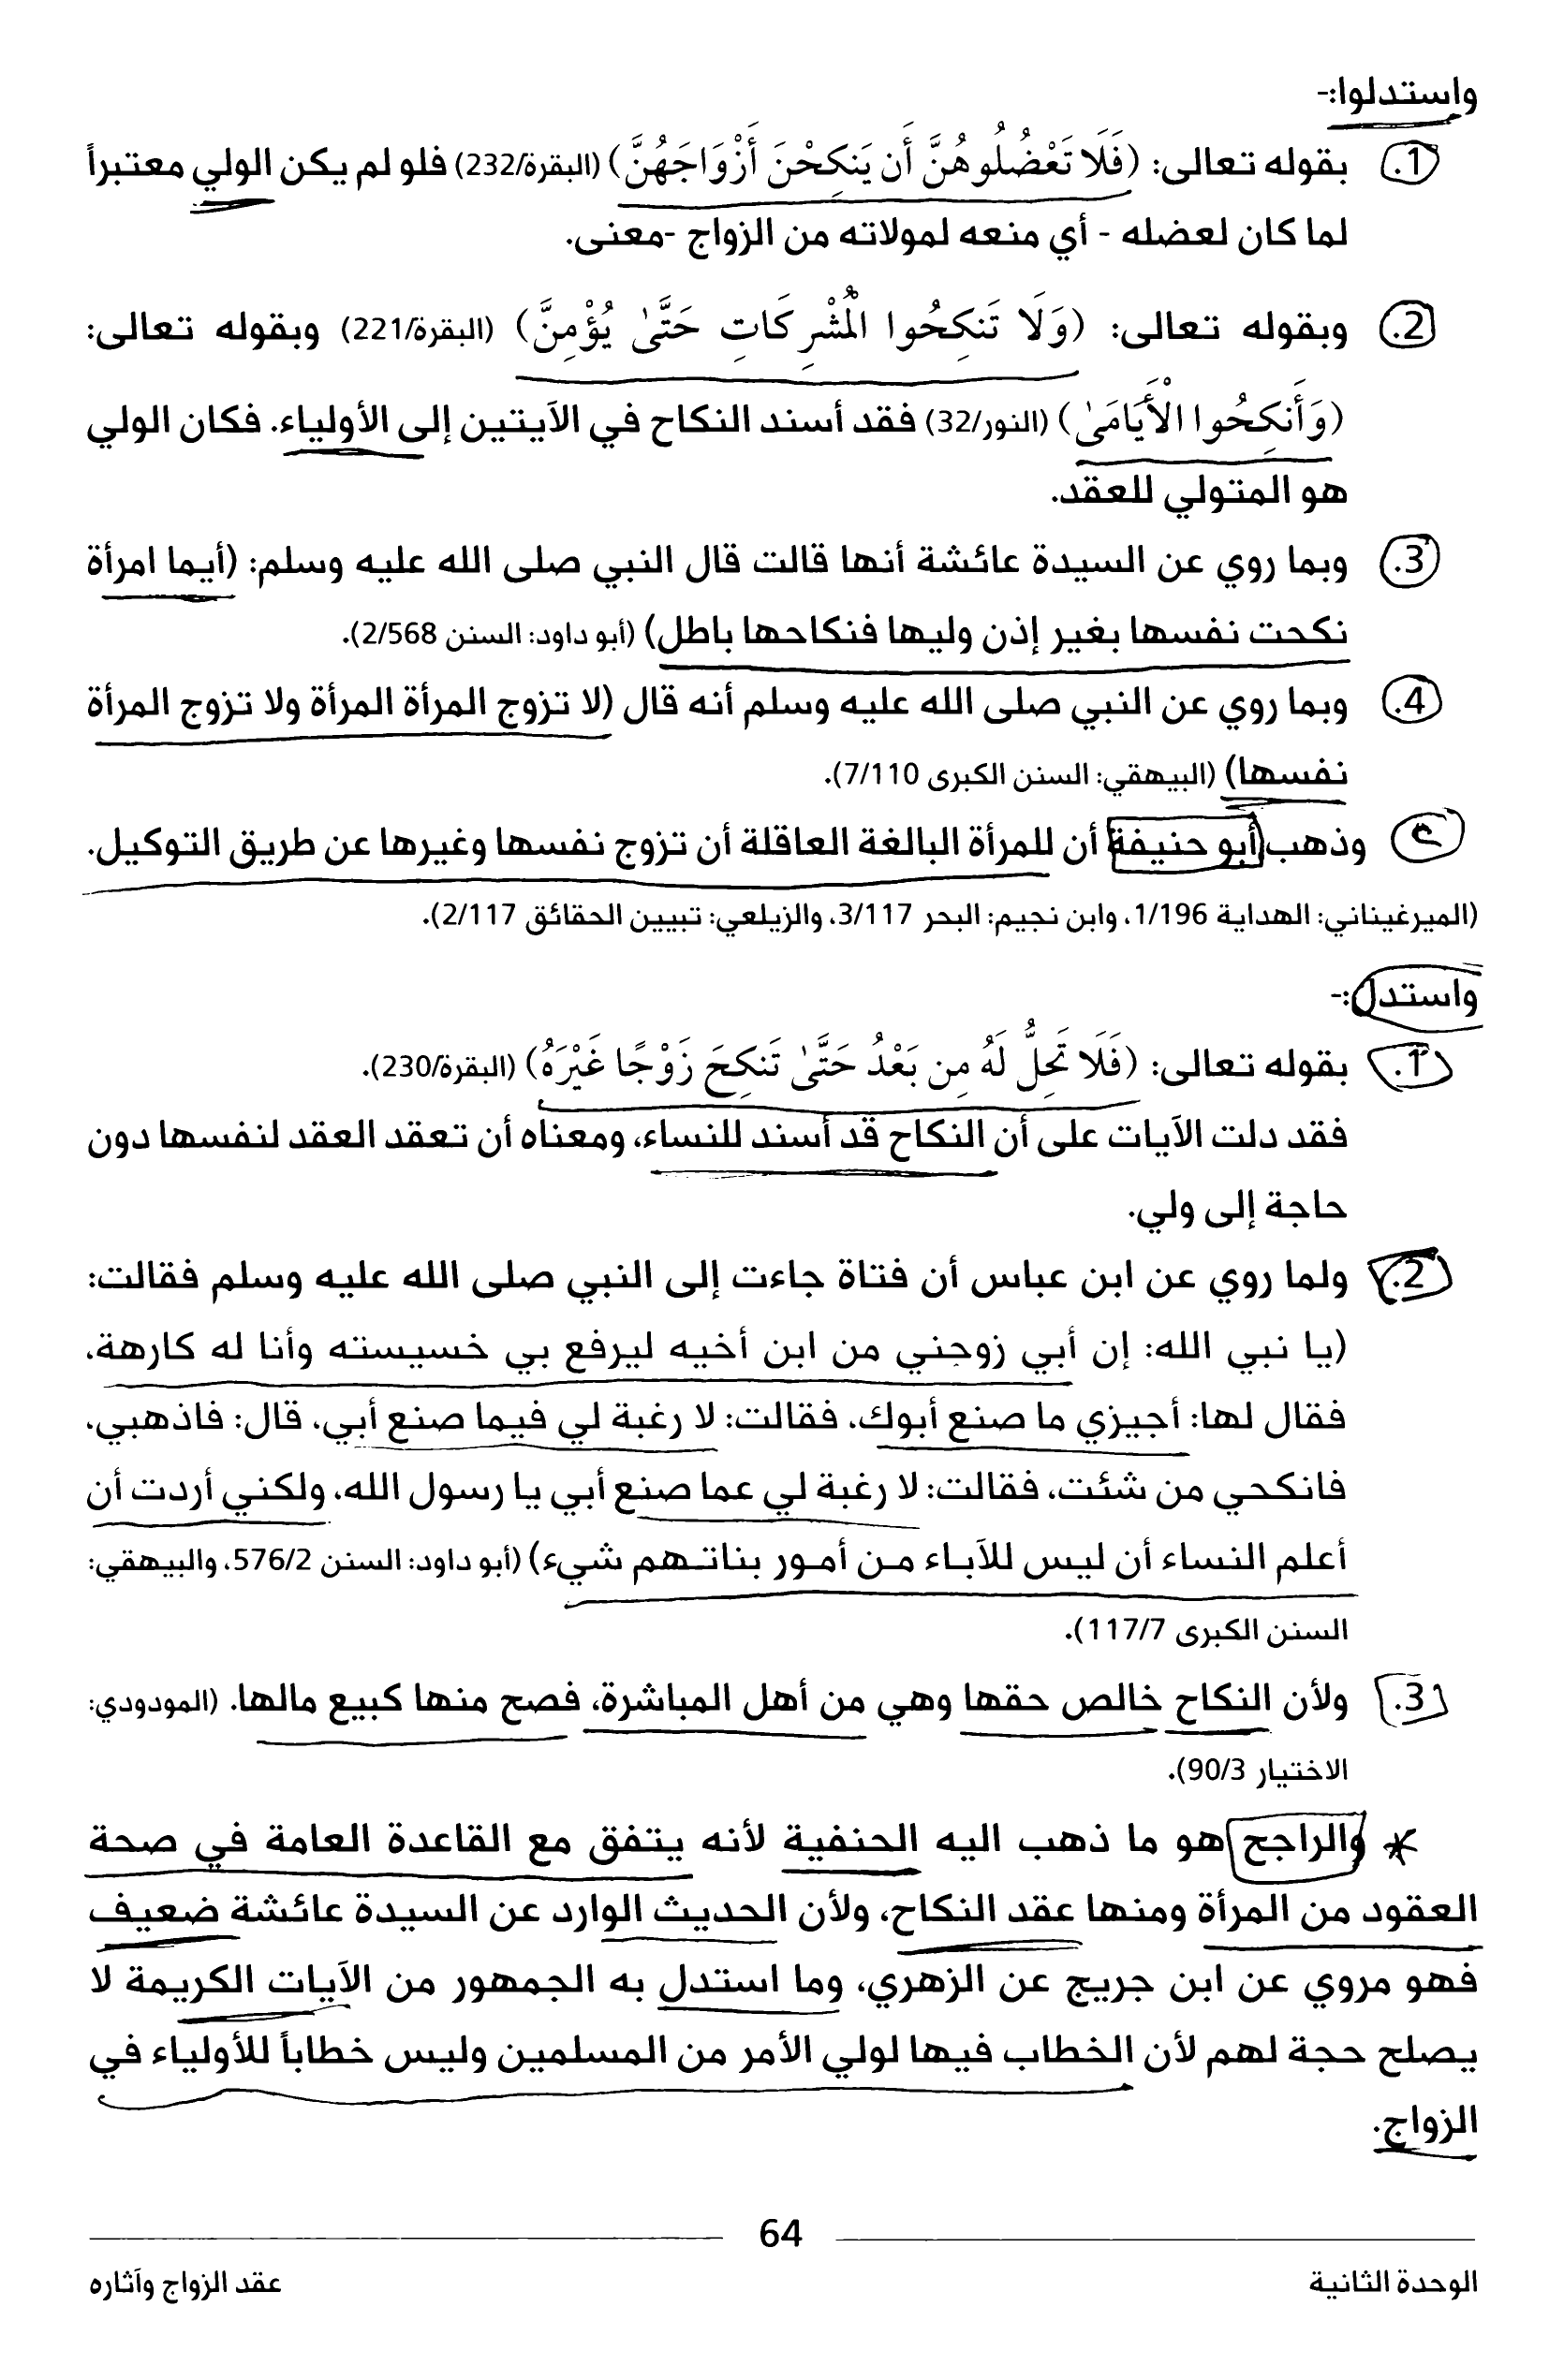 واستدلوا:-
1. بقوله تعالى: (فَلَا تَعْضُلُوهُنَّ أَن يَنكِحْنَ أَزْوَاجَهُنَّ) (البقرة/232) فلو لم يكن الولي معتبراً
لما كان لعضله - أي منعه لمولاته من الزواج -معنى.
2. وبقوله تعالى: (وَلَا تَنكِحُوا الْمُشْرِكَاتِ حَتَّىٰ يُؤْمِنَّ) (البقرة/221) وبقوله تعالى:
(وَأَنكِحُوا الْأَيَامَىٰ) (النور/32) فقد أسند النكاح في الآيتين إلى الأولياء. فكان الولي
هو المتولي للعقد.
3. وبما روي عن السيدة عائشة أنها قالت قال النبي صلى الله عليه وسلم: (أيما امرأة
نكحت نفسها بغير إذن وليها فنكاحها باطل) (أبو داود: السنن 2/568).
4. وبما روي عن النبي صلى الله عليه وسلم أنه قال (لا تزوج المرأة المرأة ولا تزوج المرأة
نفسها) (البيهقي: السنن الكبرى 7/110).
وذهب أبو حنيفة أن للمرأة البالغة العاقلة أن تزوج نفسها وغيرها عن طريق التوكيل.
(الميرغيناني: الهداية 1/196، وابن نجيم: البحر 3/117، والزيلعي: تبيين الحقائق 2/117).
واستدل:-
1. بقوله تعالى: (فَلَا تَحِلُّ لَهُ مِن بَعْدُ حَتَّىٰ تَنكِحَ زَوْجًا غَيْرَهُ) (البقرة/230).
فقد دلت الآيات على أن النكاح قد أسند للنساء، ومعناه أن تعقد العقد لنفسها دون
حاجة إلى ولي.
2. ولما روي عن ابن عباس أن فتاة جاءت إلى النبي صلى الله عليه وسلم فقالت:
(يا نبي الله: إن أبي زوجني من ابن أخيه ليرفع بي خسيسته وأنا له كارهة،
فقال لها: أجيزي ما صنع أبوك، فقالت: لا رغبة لي فيما صنع أبي، قال: فاذهبي،
فانكحي من شئت، فقالت: لا رغبة لي عما صنع أبي يا رسول الله، ولكني أردت أن
أعلم النساء أن ليس للآباء من أمور بناتهم شيء) (أبو داود: السنن 576/2، والبيهقي:
السنن الكبرى 117/7).
3. ولأن النكاح خالص حقها وهي من أهل المباشرة، فصح منها كبيع مالها. (المودودي:
الاختيار 90/3).
* والراجح هو ما ذهب اليه الحنفية لأنه يتفق مع القاعدة العامة في صحة
العقود من المرأة ومنها عقد النكاح، ولأن الحديث الوارد عن السيدة عائشة ضعيف
فهو مروي عن ابن جريج عن الزهري، وما استدل به الجمهور من الآيات الكريمة لا
يصلح حجة لهم لأن الخطاب فيها لولي الأمر من المسلمين وليس خطاباً للأولياء في
الزواج.
64
الوحدة الثانية
عقد الزواج وآثاره